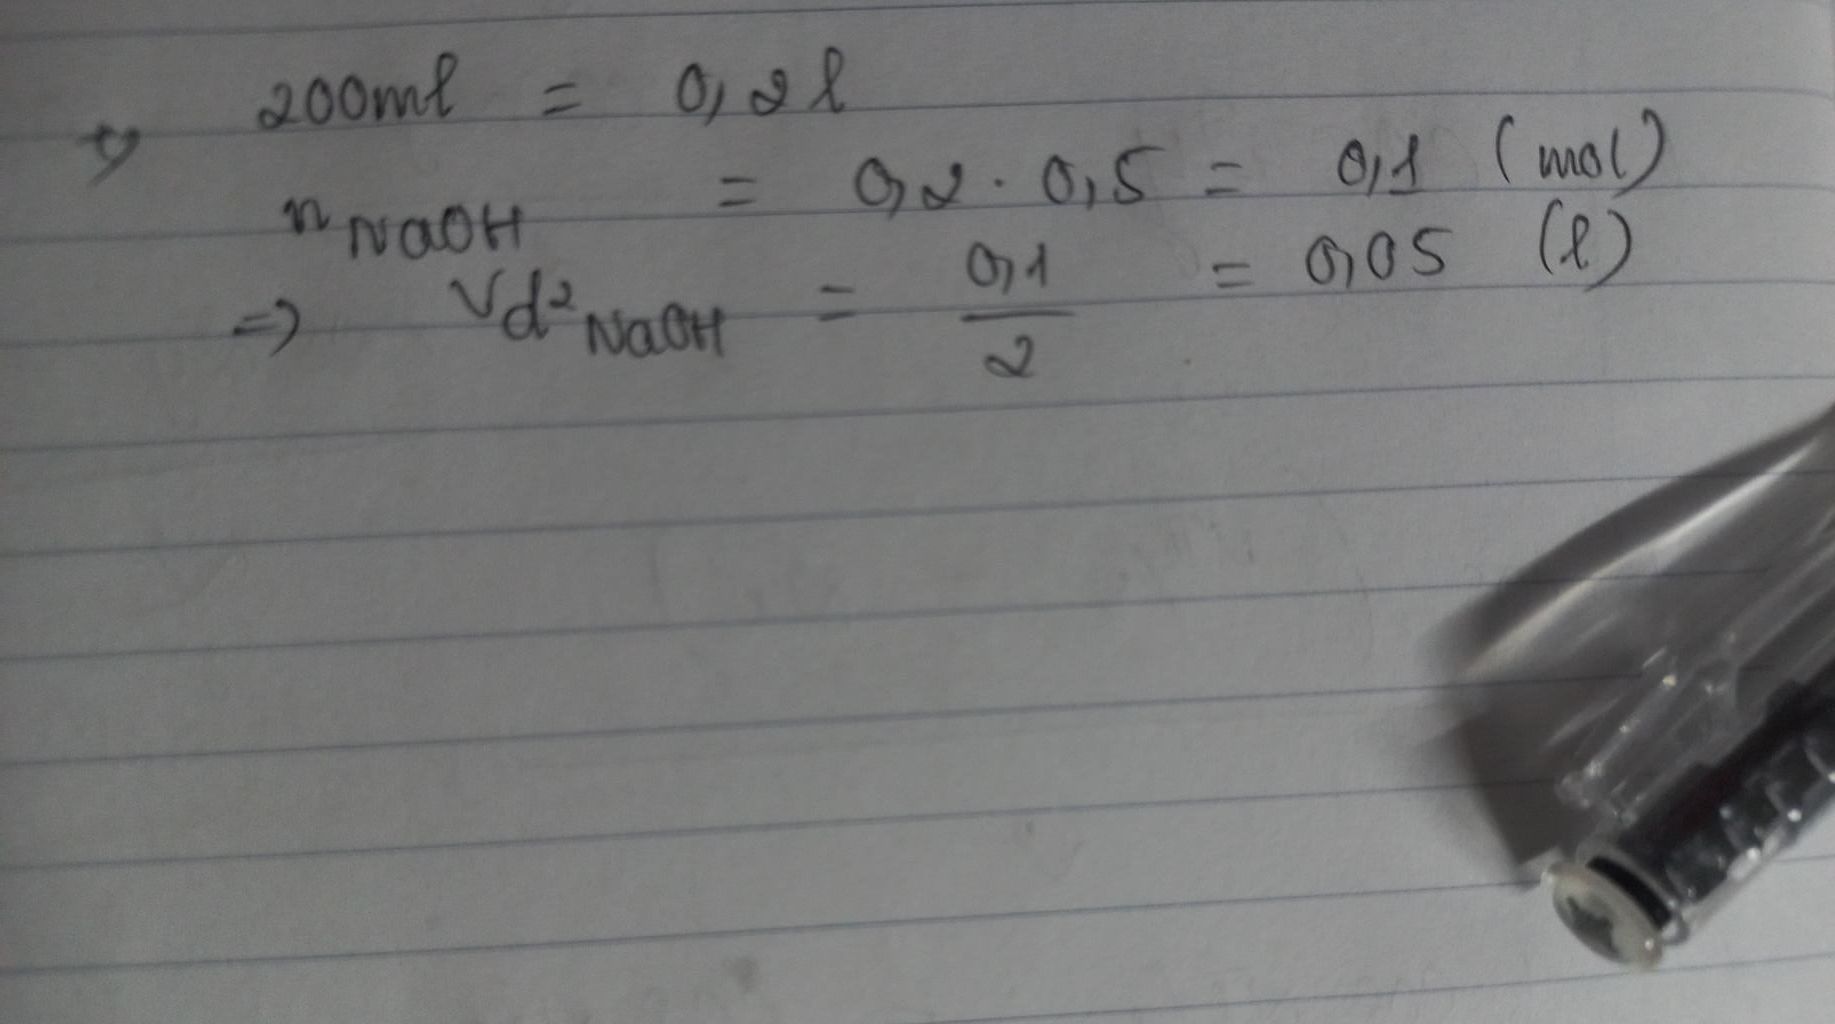 200ml = 0,2l
n NaOH = 0,2 . 0,5 = 0,1 (mol)
=> Vd² NaOH = 0,1/2 = 0,05 (l)